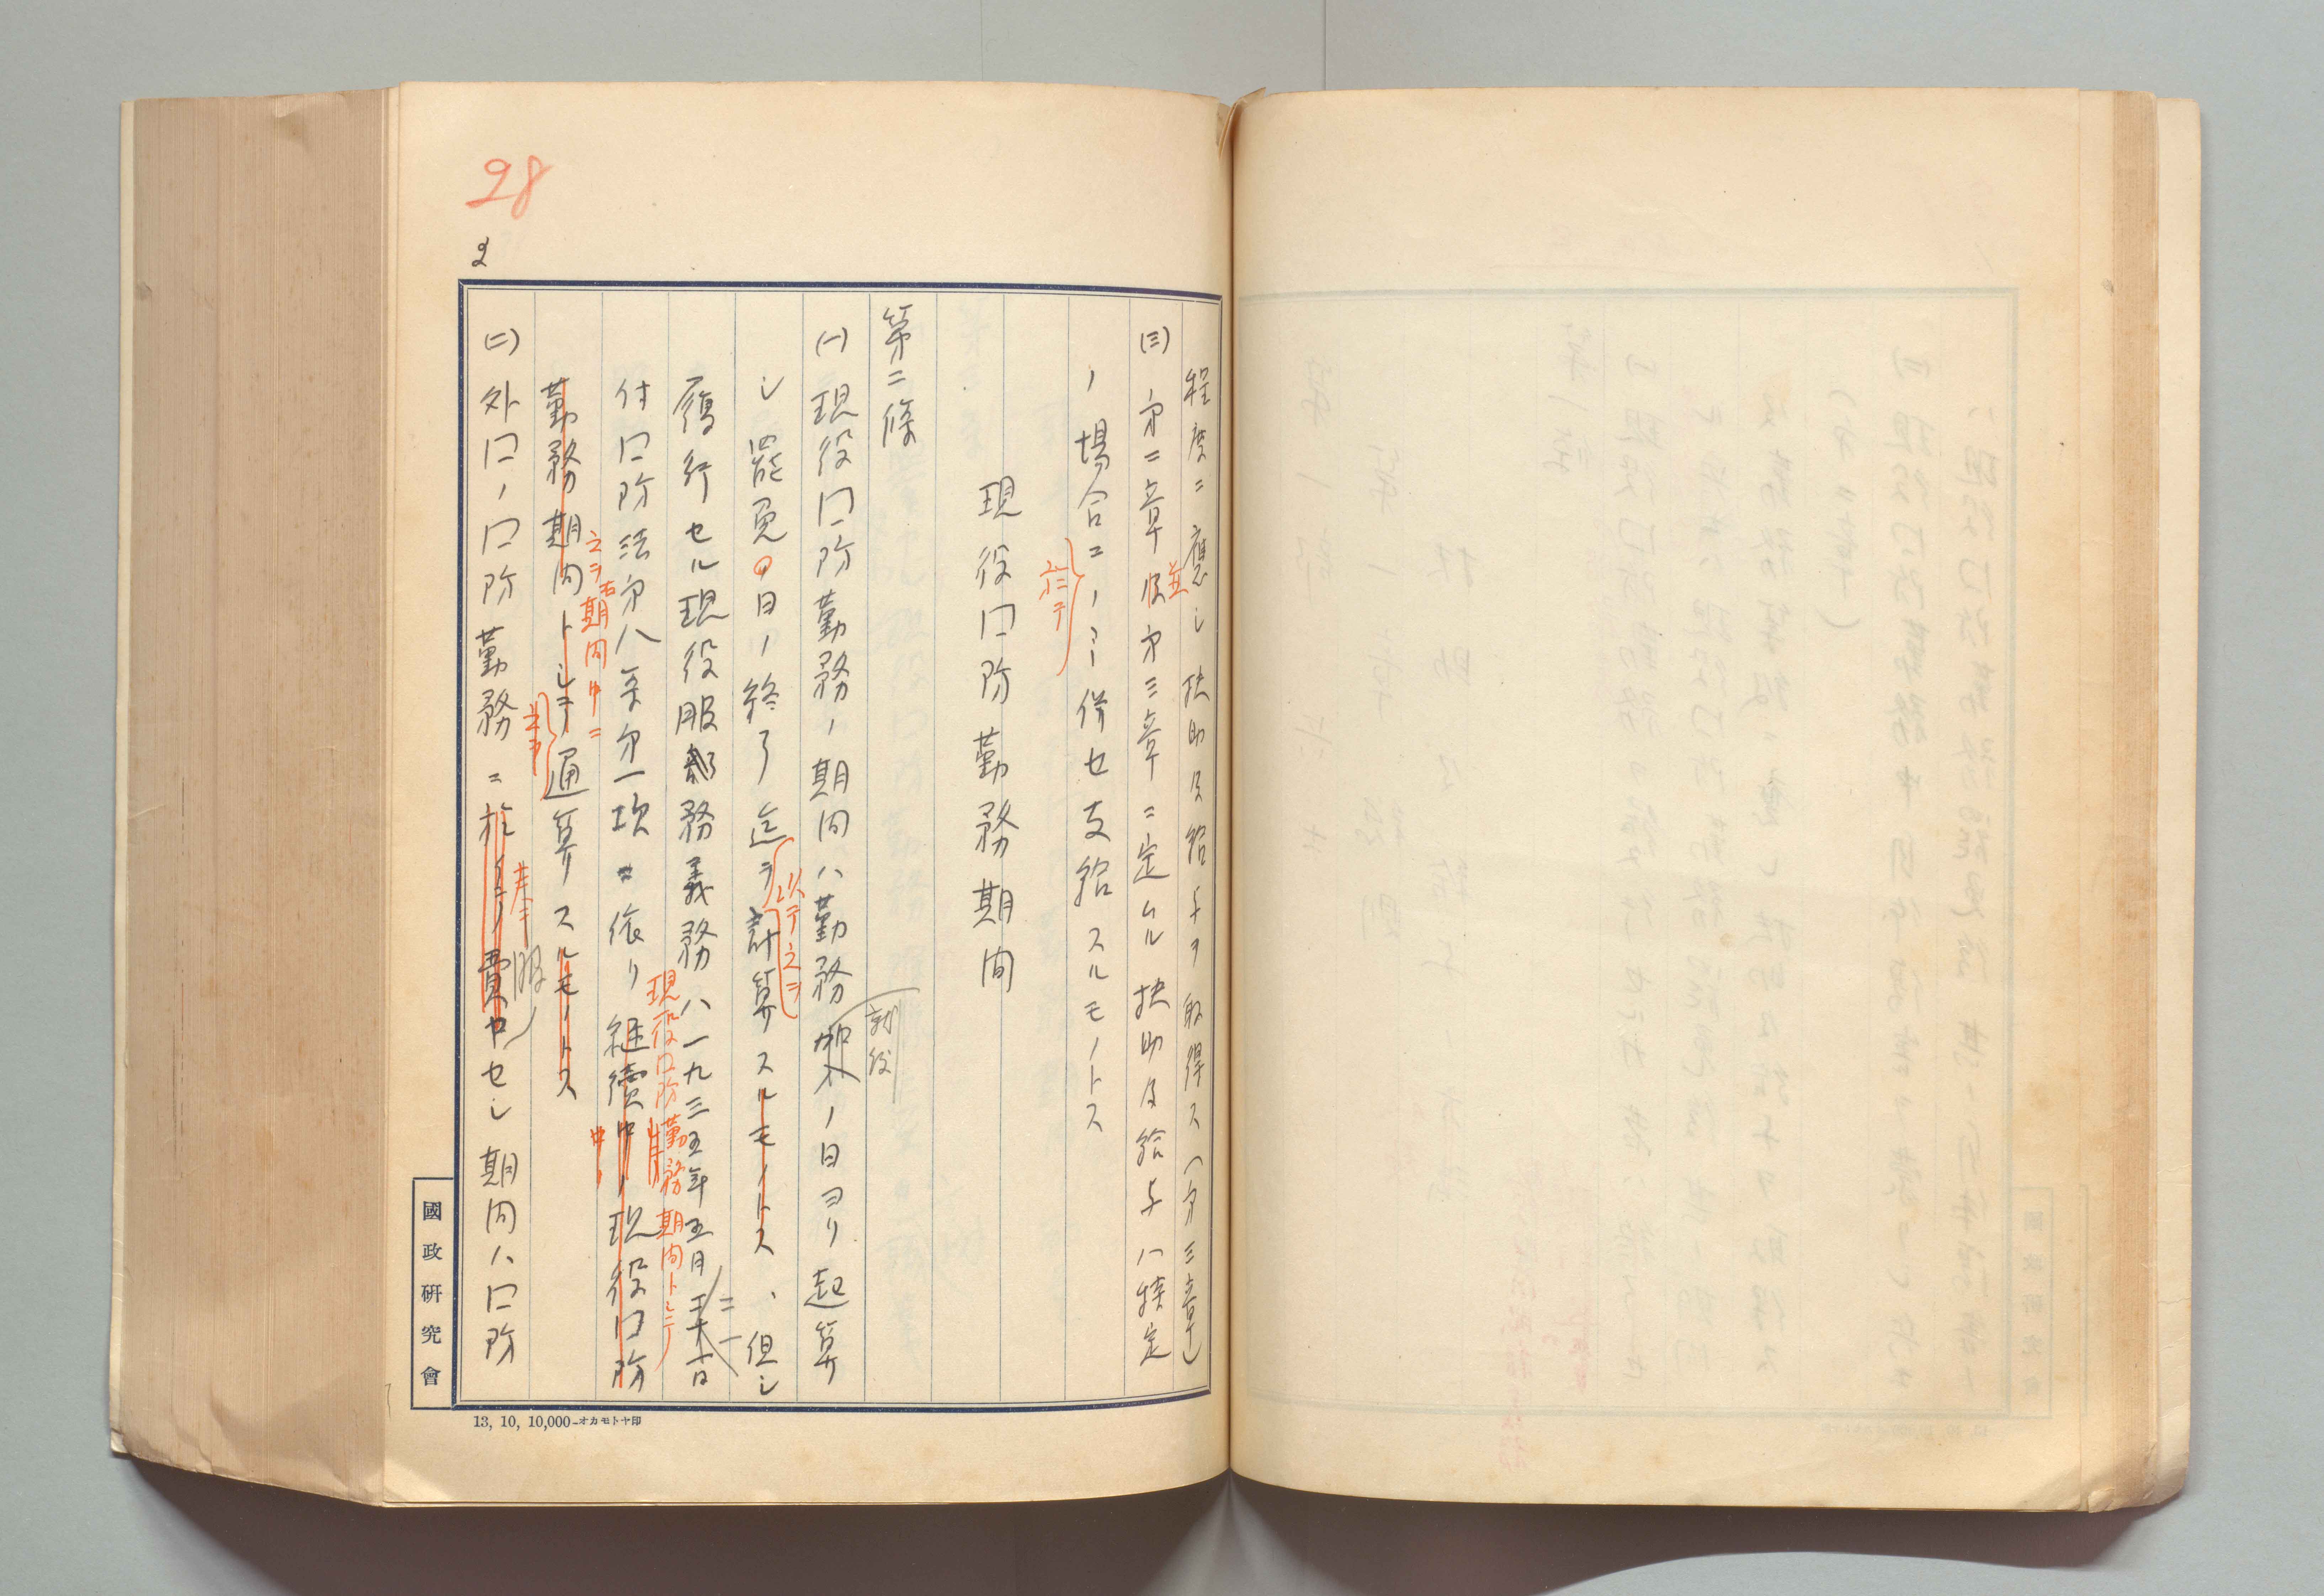 28
2
程度ニ應シ扶助及給与ヲ取得ス(第三章)
(三) 第二章及第三章ニ定ムル扶助及給与ハ特定
並
ノ場合ニノミ併セ支給スルモノトス
ニ於テ
現役囗防勤務期間
第二條
(一) 現役囗防勤務ノ期間ハ勤務ノ日ヨリ起算
就役
シ罷免ノ日ノ終了迄ヲ計算スルモノトス、但シ
以テ之ヲ
履行セル現役服務義務ハ一九三五年五月
二一
付囗防法第八条第一項ニ依リ継續中ノ現役囗防
現役囗防勤務期間トシテ
中ノ
勤務期間トシテ通算スルモノトス
之ヲ右期間中ニ
之ヲ
(二) 外囗ノ囗防勤務ニ於イテ費ヤセシ期間ハ囗防
服
國政硏究會
13, 10, 10,000-オカモトヤ印